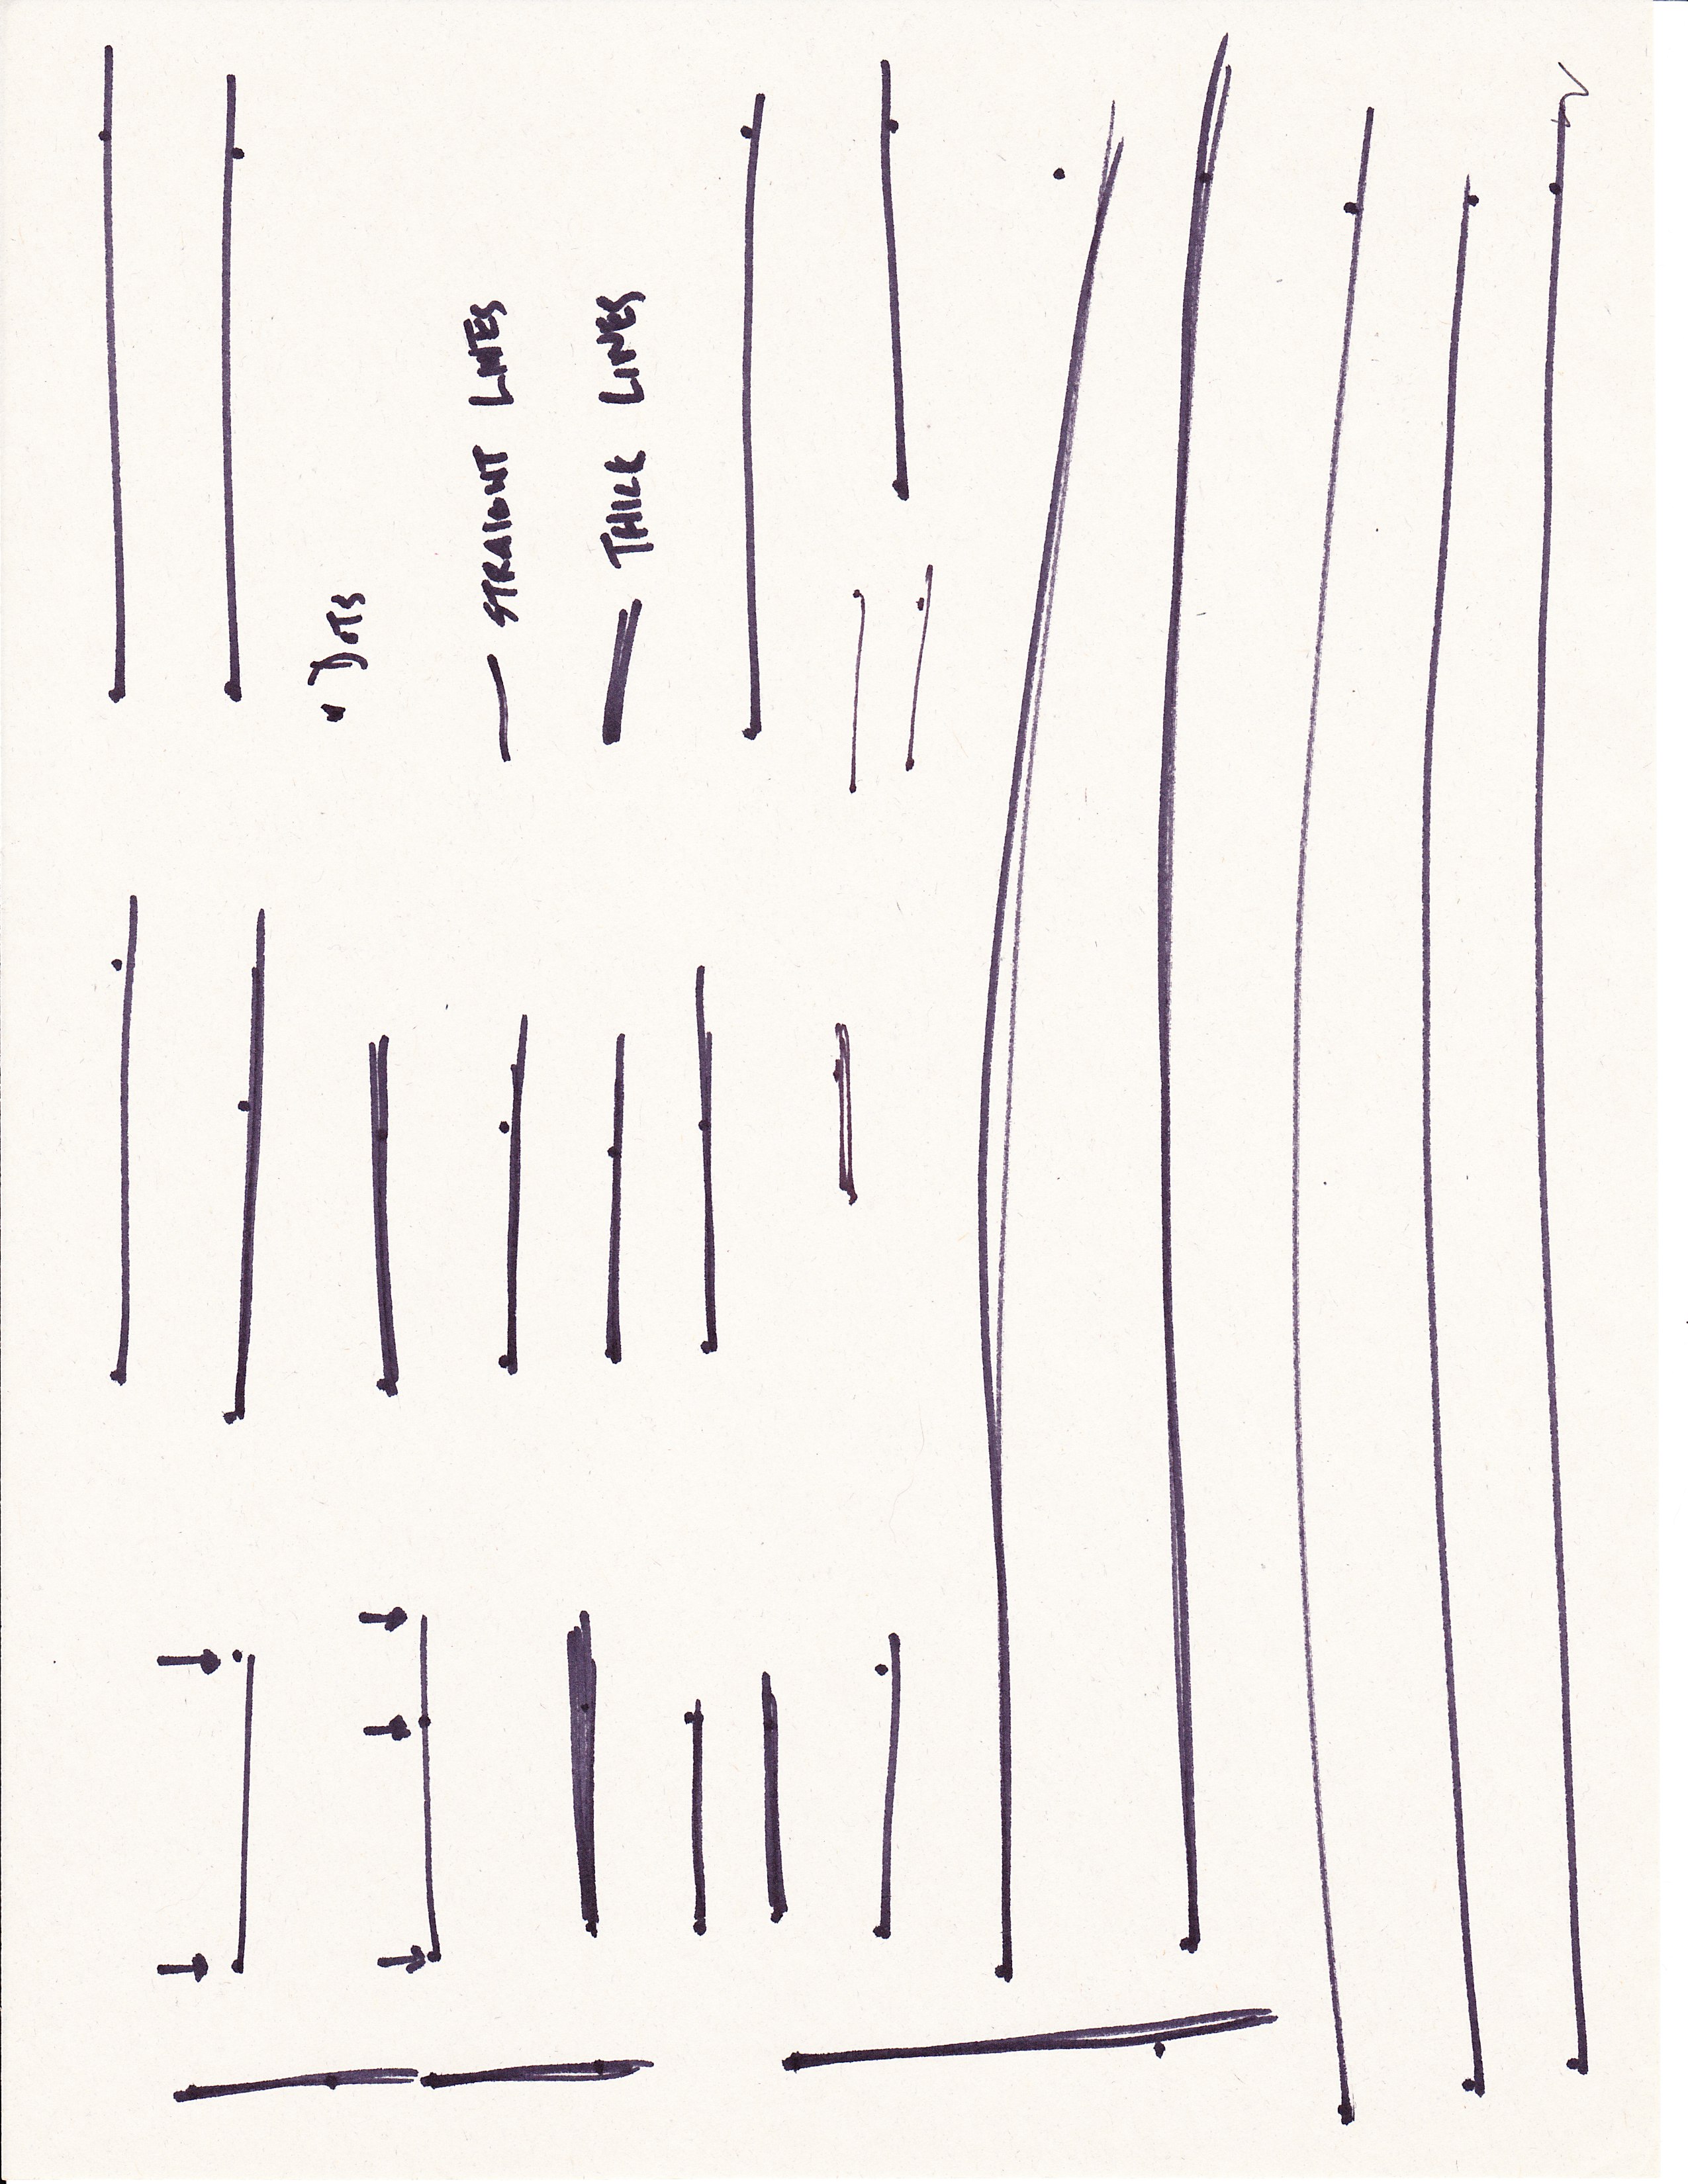 DOTS
STRAIGHT LINES
THICK LINES